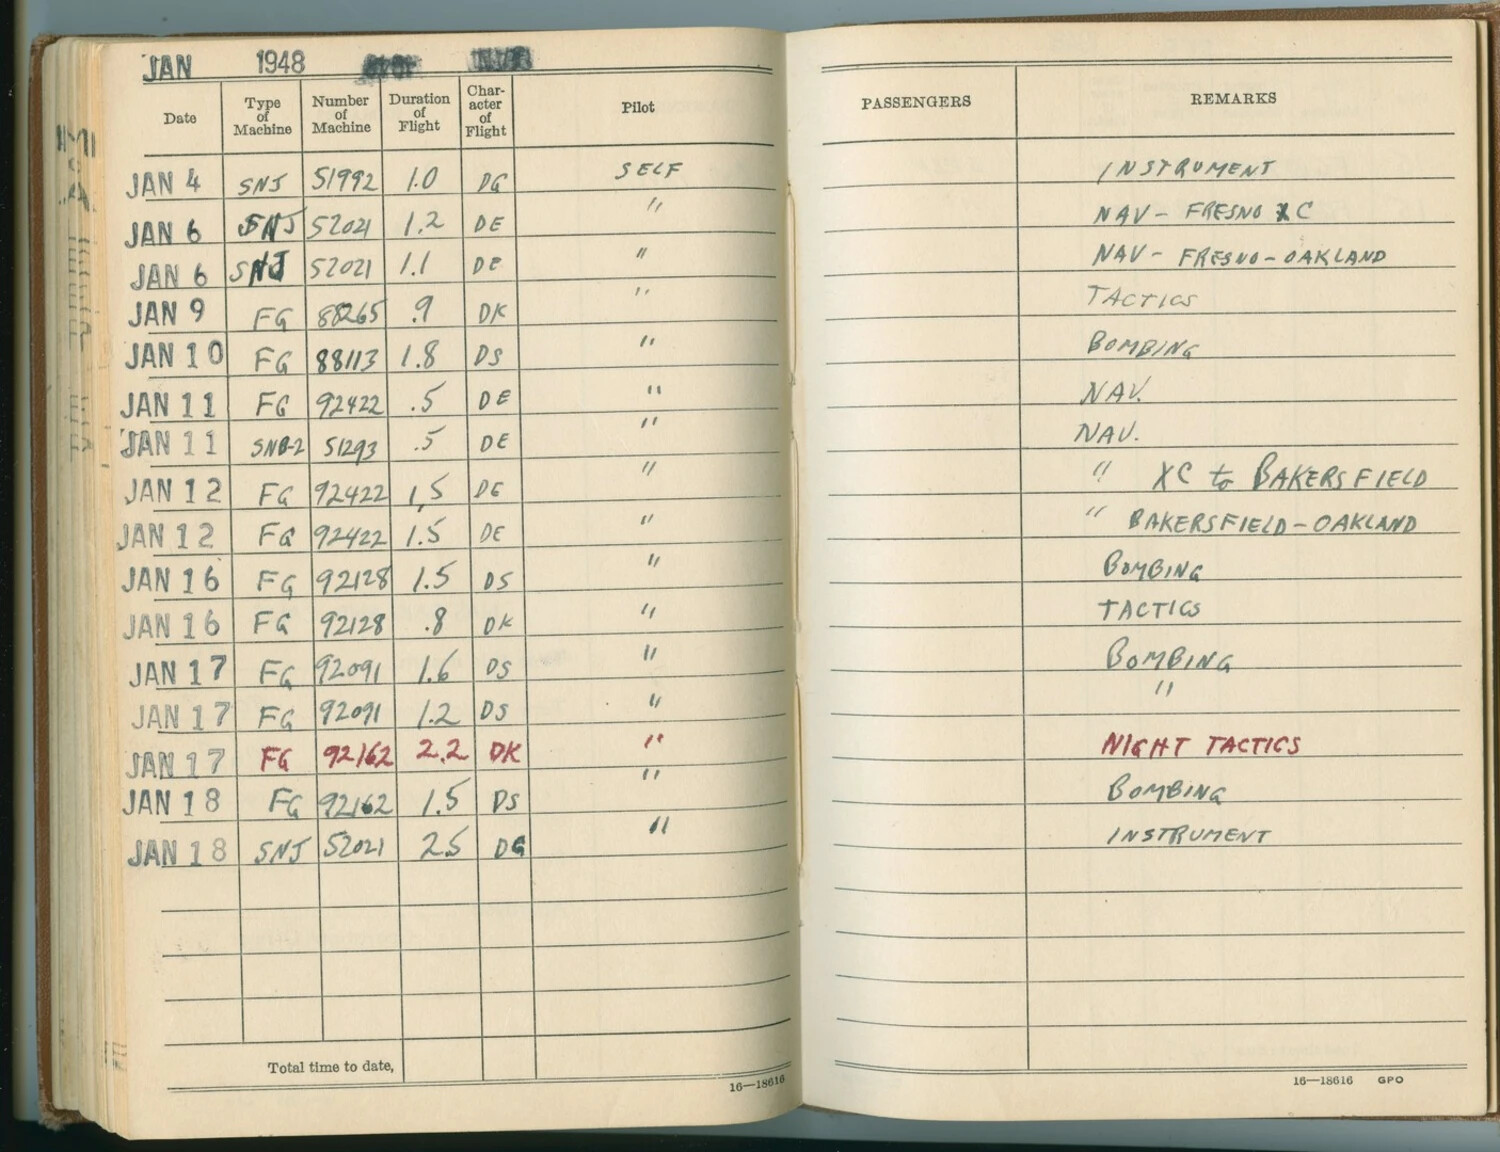 JAN 1948
Date Type of Machine Number of Machine Duration of Flight Character of Flight Pilot PASSENGERS REMARKS
JAN 4 SNJ 51992 1.0 DG SELF INSTRUMENT
JAN 6 SNJ 52021 1.2 DE " NAV - FRESNO XC
JAN 6 SNJ 52021 1.1 DE " NAV - FRESNO - OAKLAND
JAN 9 FG 88265 .9 DK " TACTICS
JAN 10 FG 88113 1.8 DS " BOMBING
JAN 11 FG 92422 .5 DE " NAV.
JAN 11 SNB-2 51293 .5 DE " NAV.
JAN 12 FG 92422 1.5 DE " " XC to BAKERSFIELD
JAN 12 FG 92422 1.5 DE " " BAKERSFIELD - OAKLAND
JAN 16 FG 92128 1.5 DS " BOMBING
JAN 16 FG 92128 .8 DK " TACTICS
JAN 17 FG 92091 1.6 DS " BOMBING
JAN 17 FG 92091 1.2 DS " "
JAN 17 FG 92162 2.2 DK " NIGHT TACTICS
JAN 18 FG 92162 1.5 DS " BOMBING
JAN 18 SNJ 52021 2.5 DG " INSTRUMENT
Total time to date,
16—18616 16—18616 GPO